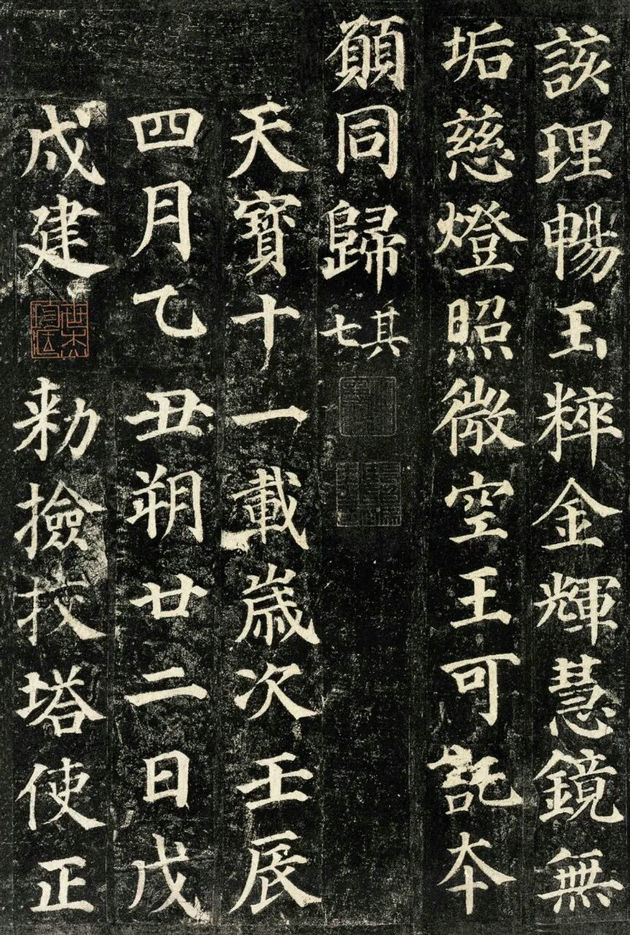 該理暢玉粹金輝慧鏡無
垢慈燈照微空王可託本
願同歸其七
天寶十一載歲次壬辰
四月乙丑朔廿二日戊
戌建勑撿挍塔使正